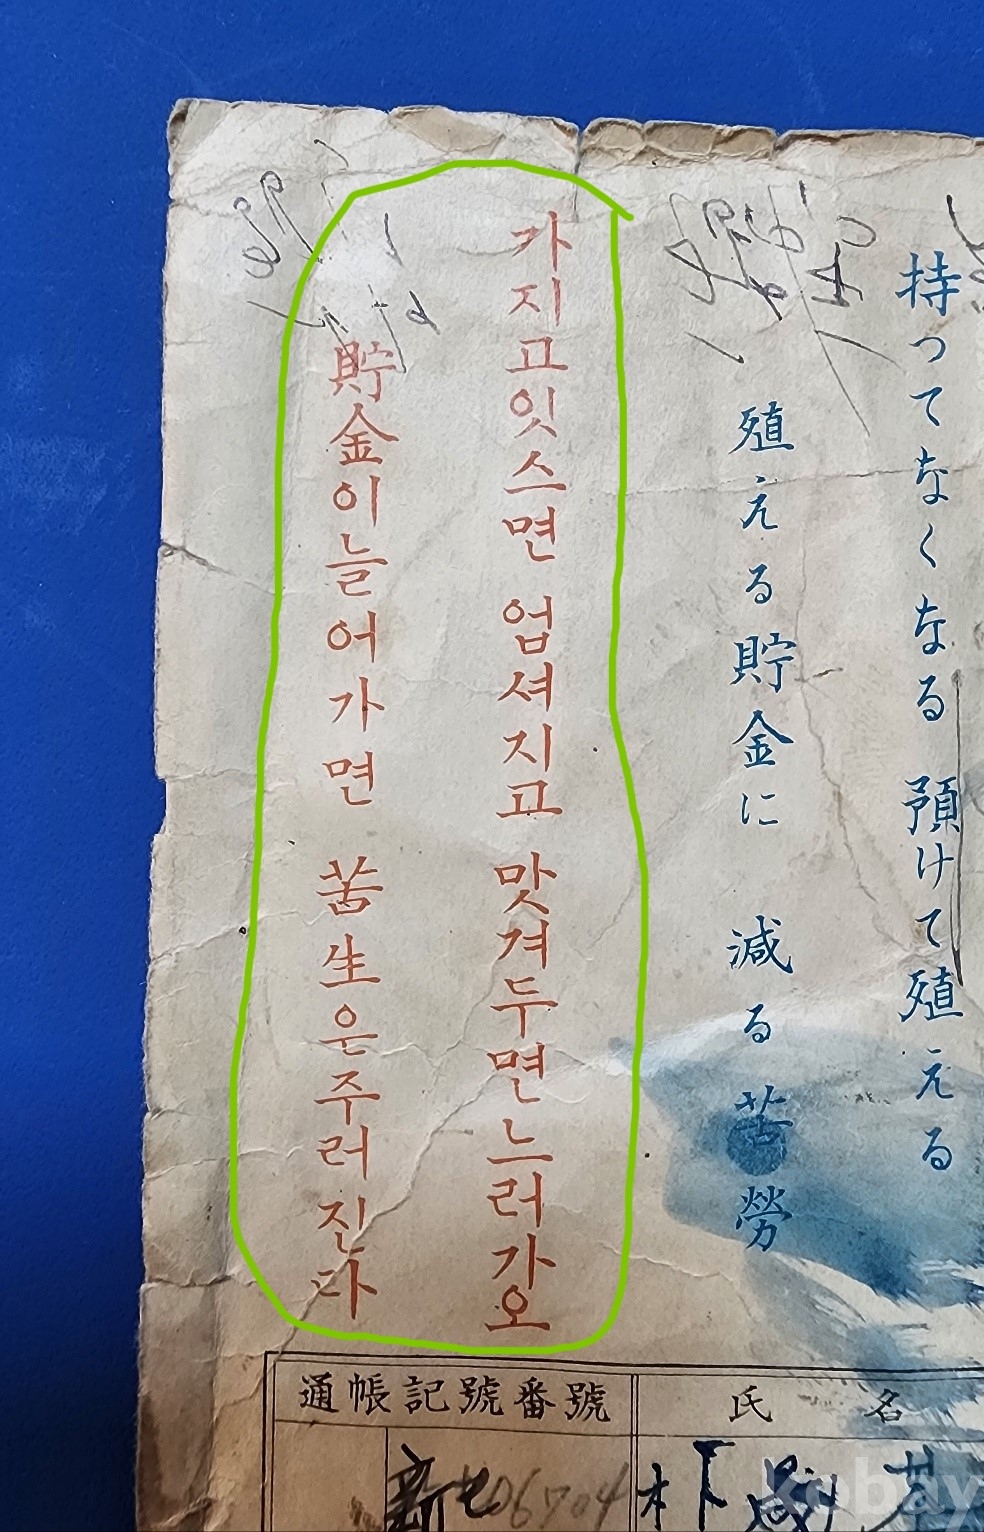 持つてなくなる 預けて殖える
殖える貯金に 減る苦勞
가지고잇스면 업셔지고 맛겨두면느러가오
貯金이늘어가면 苦生은주러진다
通帳記號番號
氏名
新
06704
朴
kobay